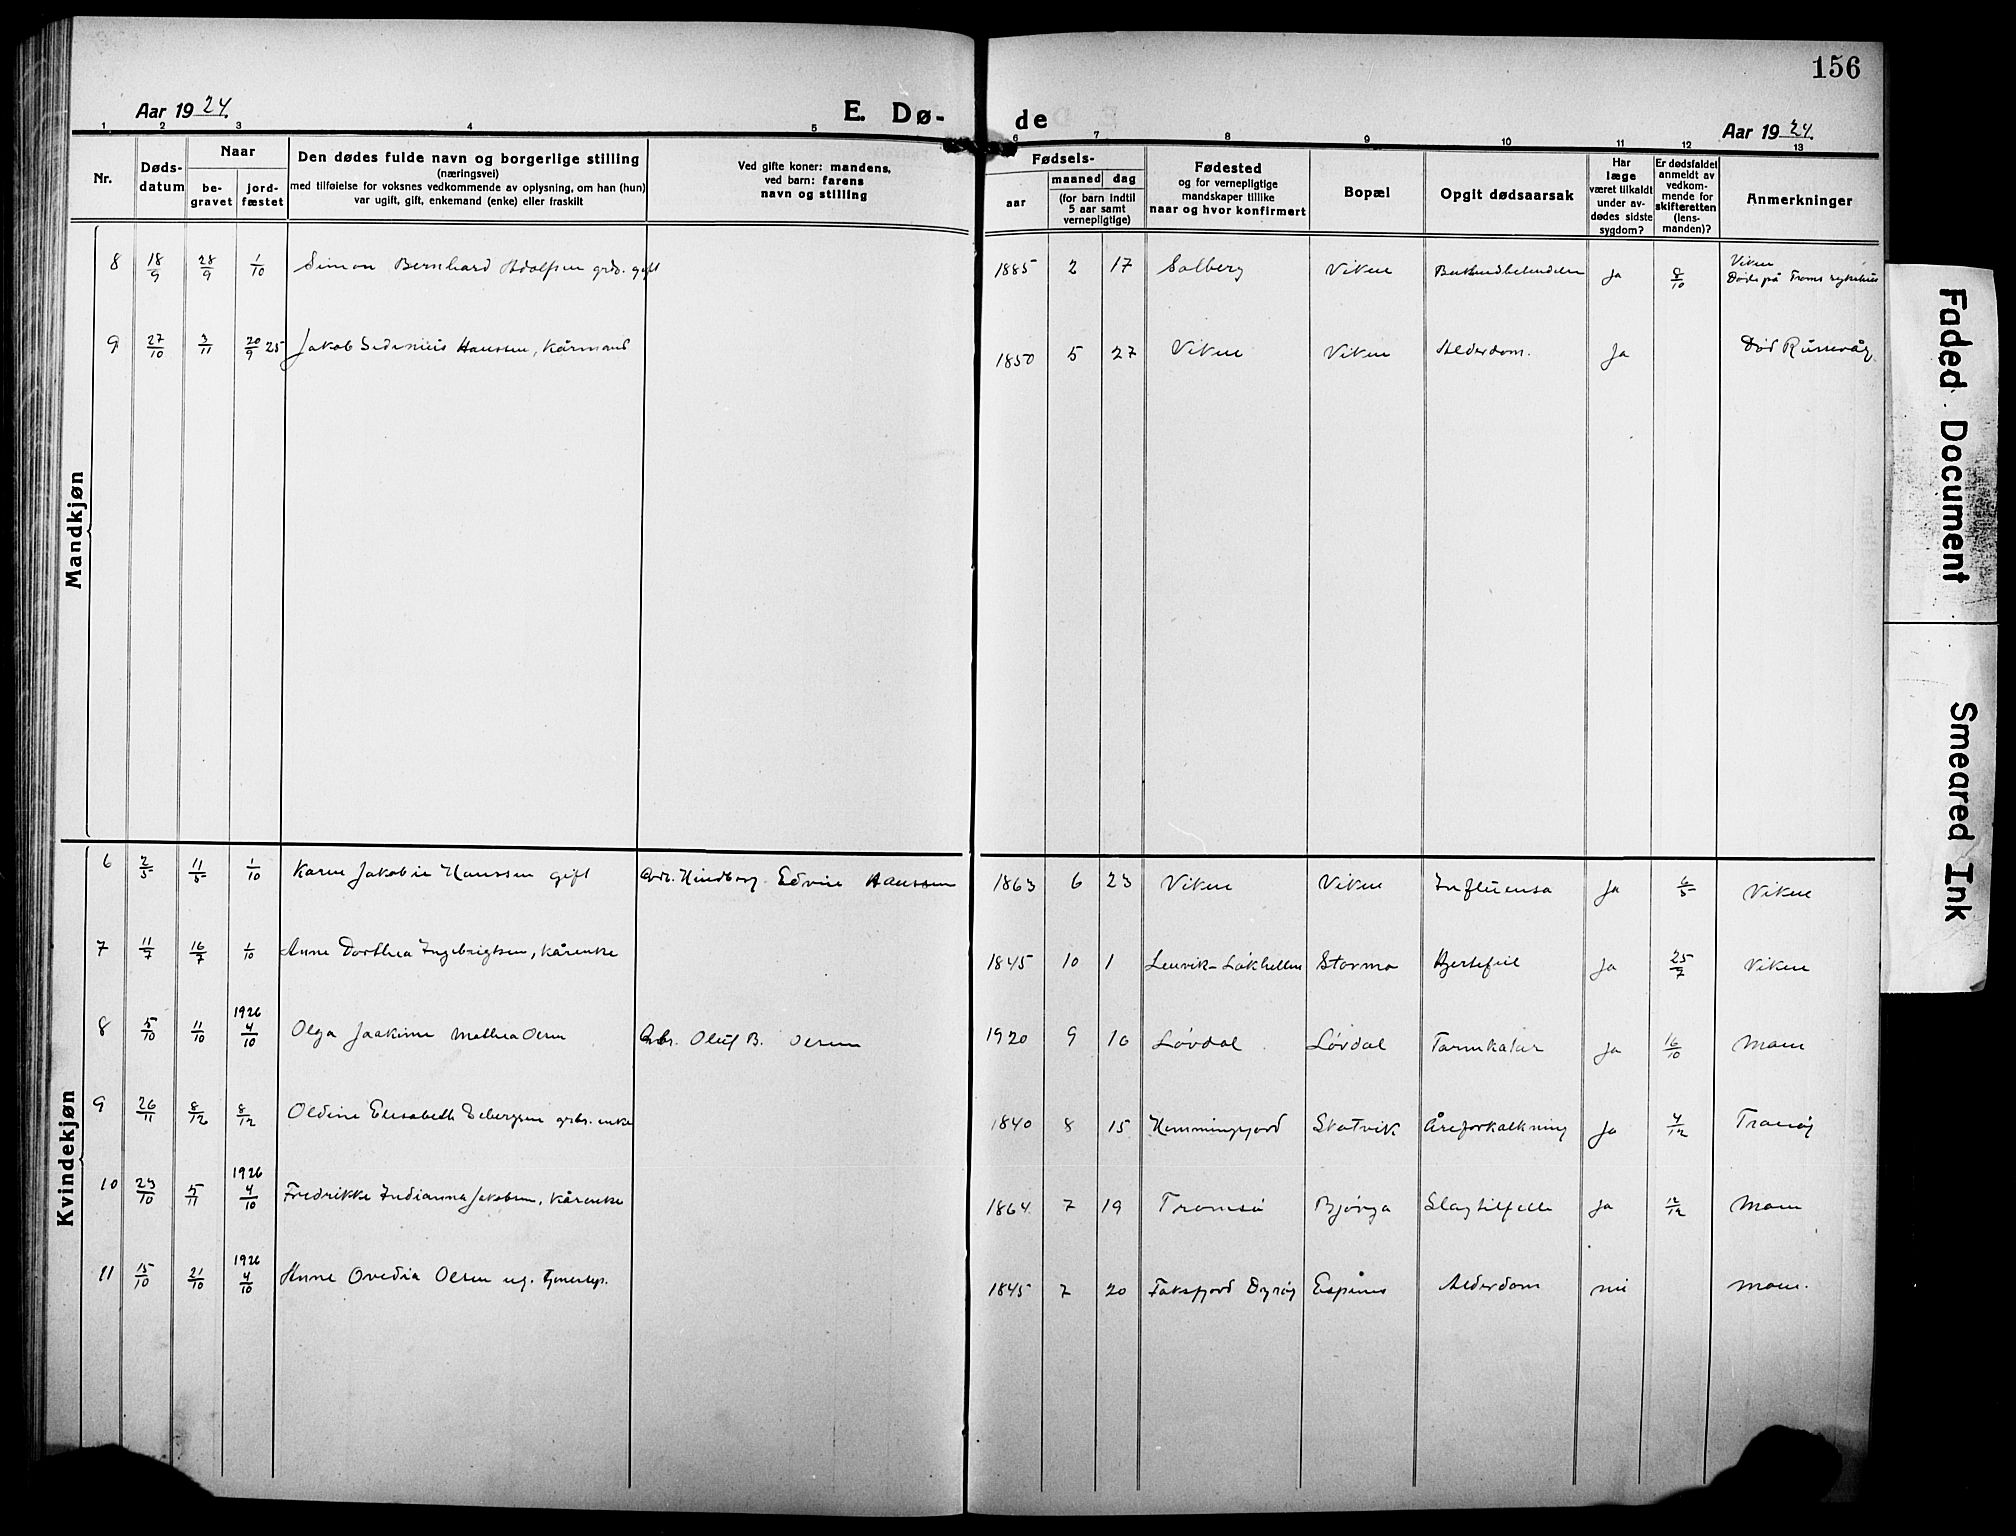 156
Aar 1924.
E. Dø-
de
Aar 1924.
1 2 3 4 5 6 7 8 9 10 11 12 13
Nr.
Døds-
datum
Naar
be-
gravet
jord-
fæstet
Den dødes fulde navn og borgerlige stilling
(næringsvei)
med tilføielse for voksnes vedkommende av oplysning, om han (hun)
var ugift, gift, enkemand (enke) eller fraskilt
Ved gifte koner: mandens,
ved barn: farens
navn og stilling
Fødsels-
aar
maaned dag
(for barn indtil
5 aar samt
vernepligtige)
Fødested
og for vernepligtige
mandskaper tillike
naar og hvor konfirmert
Bopæl
Opgit dødsaarsak
Har
læge
været tilkaldt
under av-
dødes sidste
sygdom?
Er dødsfaldet
anmeldt av
vedkom-
mende for
skifteretten
(lens-
manden)?
Anmerkninger
Mandkjøn
8 18/9 28/9 1/10 Simon Bernhard Adolfsen grb. gift 1885 2 17 Solberg Viken ja 8/10 Viken
Døde på Troms sykehus
9 27/10 3/11 20/9 25 Jakob Sedenius Hanssen, kårmand 1850 5 27 Viken Viken Alderdom. ja Død Russevåg
Kvindekjøn
6 2/5 11/5 1/10 Karen Jakobie Hanssen gift Edvin Hanssen 1863 6 23 Viken Viken Influensa ja 6/5 Viken
7 11/7 16/7 1/10 Anne Dorthea Ingebrigtsen, kårenke 1845 10 1 Lenvik-Lökhellen Stormo Hjertefeil ja 25/7 Viken
1926
8 5/10 11/10 4/10 Olga Joakime Mathea Olsen Gbr. Oluf B. Olsen 1920 9 16 Lövdal Lövdal Tarmkatar ja 16/10 Moen
9 26/11 8/12 8/12 Oldine Elisabeth Edbergsen grbr. enke 1840 8 15 Hemmingfjord Skatvik Åreforkalkning ja 4/12 Tranöj
1926
10 23/10 5/11 4/10 Fredrikke Indianna Jakobsen, kårenke 1864 7 19 Tromsö Bjørga Slagtilfelle ja 12/12 Moen
1926
11 15/10 21/10 4/10 Anne Ovedia Olsen ug. 1845 7 20 Faksfjord Dyröy Espenes Alderdom nei Moen.
Faded Document
Smeared Ink